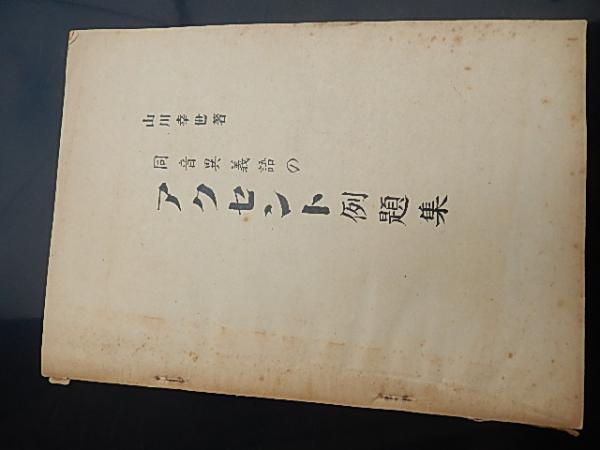 同音異義語の
アクセント例題集
山川幸世著